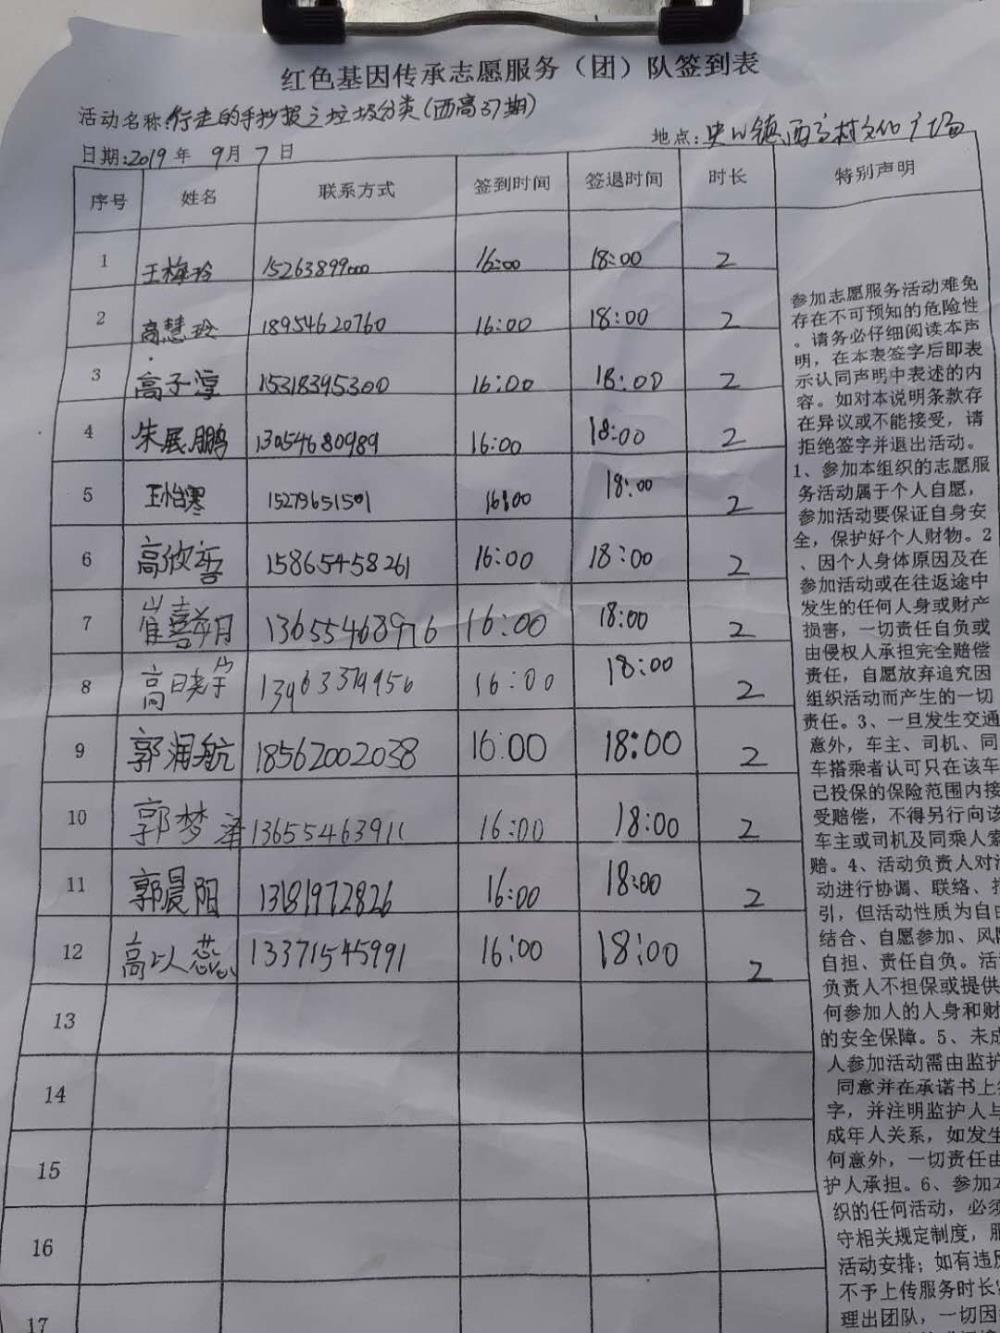 红色基因传承志愿服务（团）队签到表
活动名称:行走的手抄报之垃圾分类(西高37期)
日期:2019年 9月 7日 地点:史口镇西高村文化广场
序号 姓名 联系方式 签到时间 签退时间 时长 特别声明
1 王梅玲 15263899000 16:00 18:00 2
2 高慧玲 18954620760 16:00 18:00 2
3 高子淳 15318395300 16:00 18:00 2
4 朱展鹏 13054680989 16:00 18:00 2
5 王怡寒 15273651501 16:00 18:00 2
6 高欣 15865458261 16:00 18:00 2
7 崔喜 13655468976 16:00 18:00 2
8 高晓宇 13963379956 16:00 18:00 2
9 郭润航 18562002038 16:00 18:00 2
10 郭梦泽 13655463911 16:00 18:00 2
11 郭晨阳 13181972826 16:00 18:00 2
12 高以蕊 13371545991 16:00 18:00 2
13
14
15
16
17
参加志愿服务活动难免
存在不可预知的危险性
。请务必仔细阅读本声
明，在本表签字后即表
示认同声明中表述的内
容。如对本说明条款存
在异议或不能接受，请
拒绝签字并退出活动。
1、参加本组织的志愿服
务活动属于个人自愿，
参加活动要保证自身安
全，保护好个人财物。2
、因个人身体原因及在
参加活动或在往返途中
发生的任何人身或财产
损害，一切责任自负或
由侵权人承担完全赔偿
责任，自愿放弃追究因
组织活动而产生的一切
责任。3、一旦发生交通
意外，车主、司机、同
车搭乘者认可只在该车
已投保的保险范围内接
受赔偿，不得另行向该
车主或司机及同乘人索
赔。4、活动负责人对活
动进行协调、联络、指
引，但活动性质为自由
结合、自愿参加、风险
自担、责任自负。活动
负责人不担保或提供
何参加人的人身和财
的安全保障。5、未成
人参加活动需由监护
同意并在承诺书上
字，并注明监护人与
成年人关系，如发生
何意外，一切责任由
护人承担。6、参加本
织的任何活动，必须
守相关规定制度，服
活动安排；如有违反
不予上传服务时长
理出团队，一切因